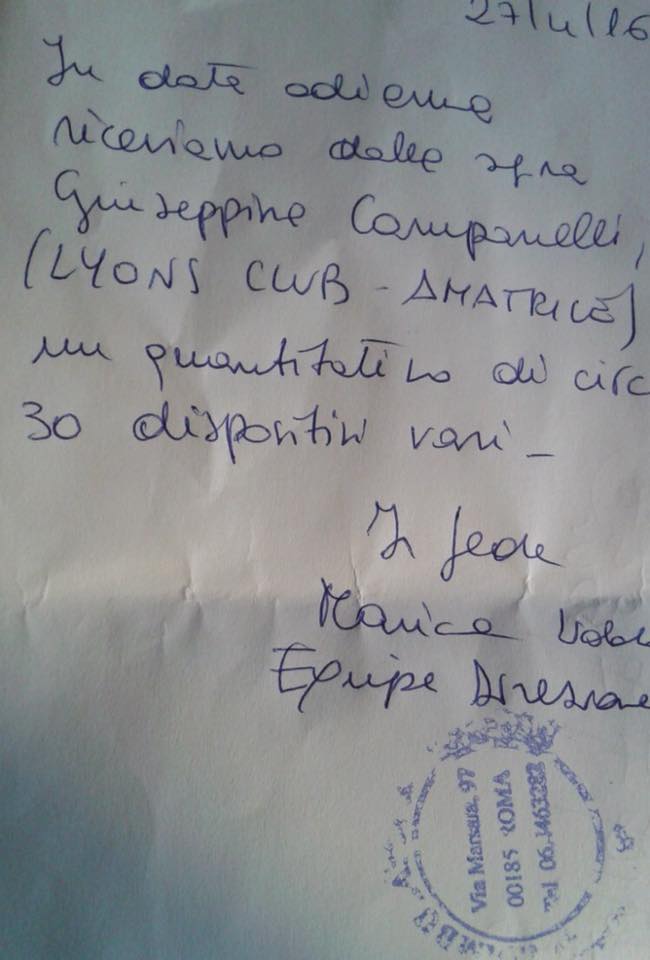 27/4/16
In data odierna
riceviamo dalla sig.ra
Giuseppina Campanelli,
(LYONS CLUB - AMATRICE)
un quantitativo di circ
30 dispositivi vari -
In fede
Marica
Equipe Direzione
Via Marsala, 97
00185 ROMA
Tel 06.4463282